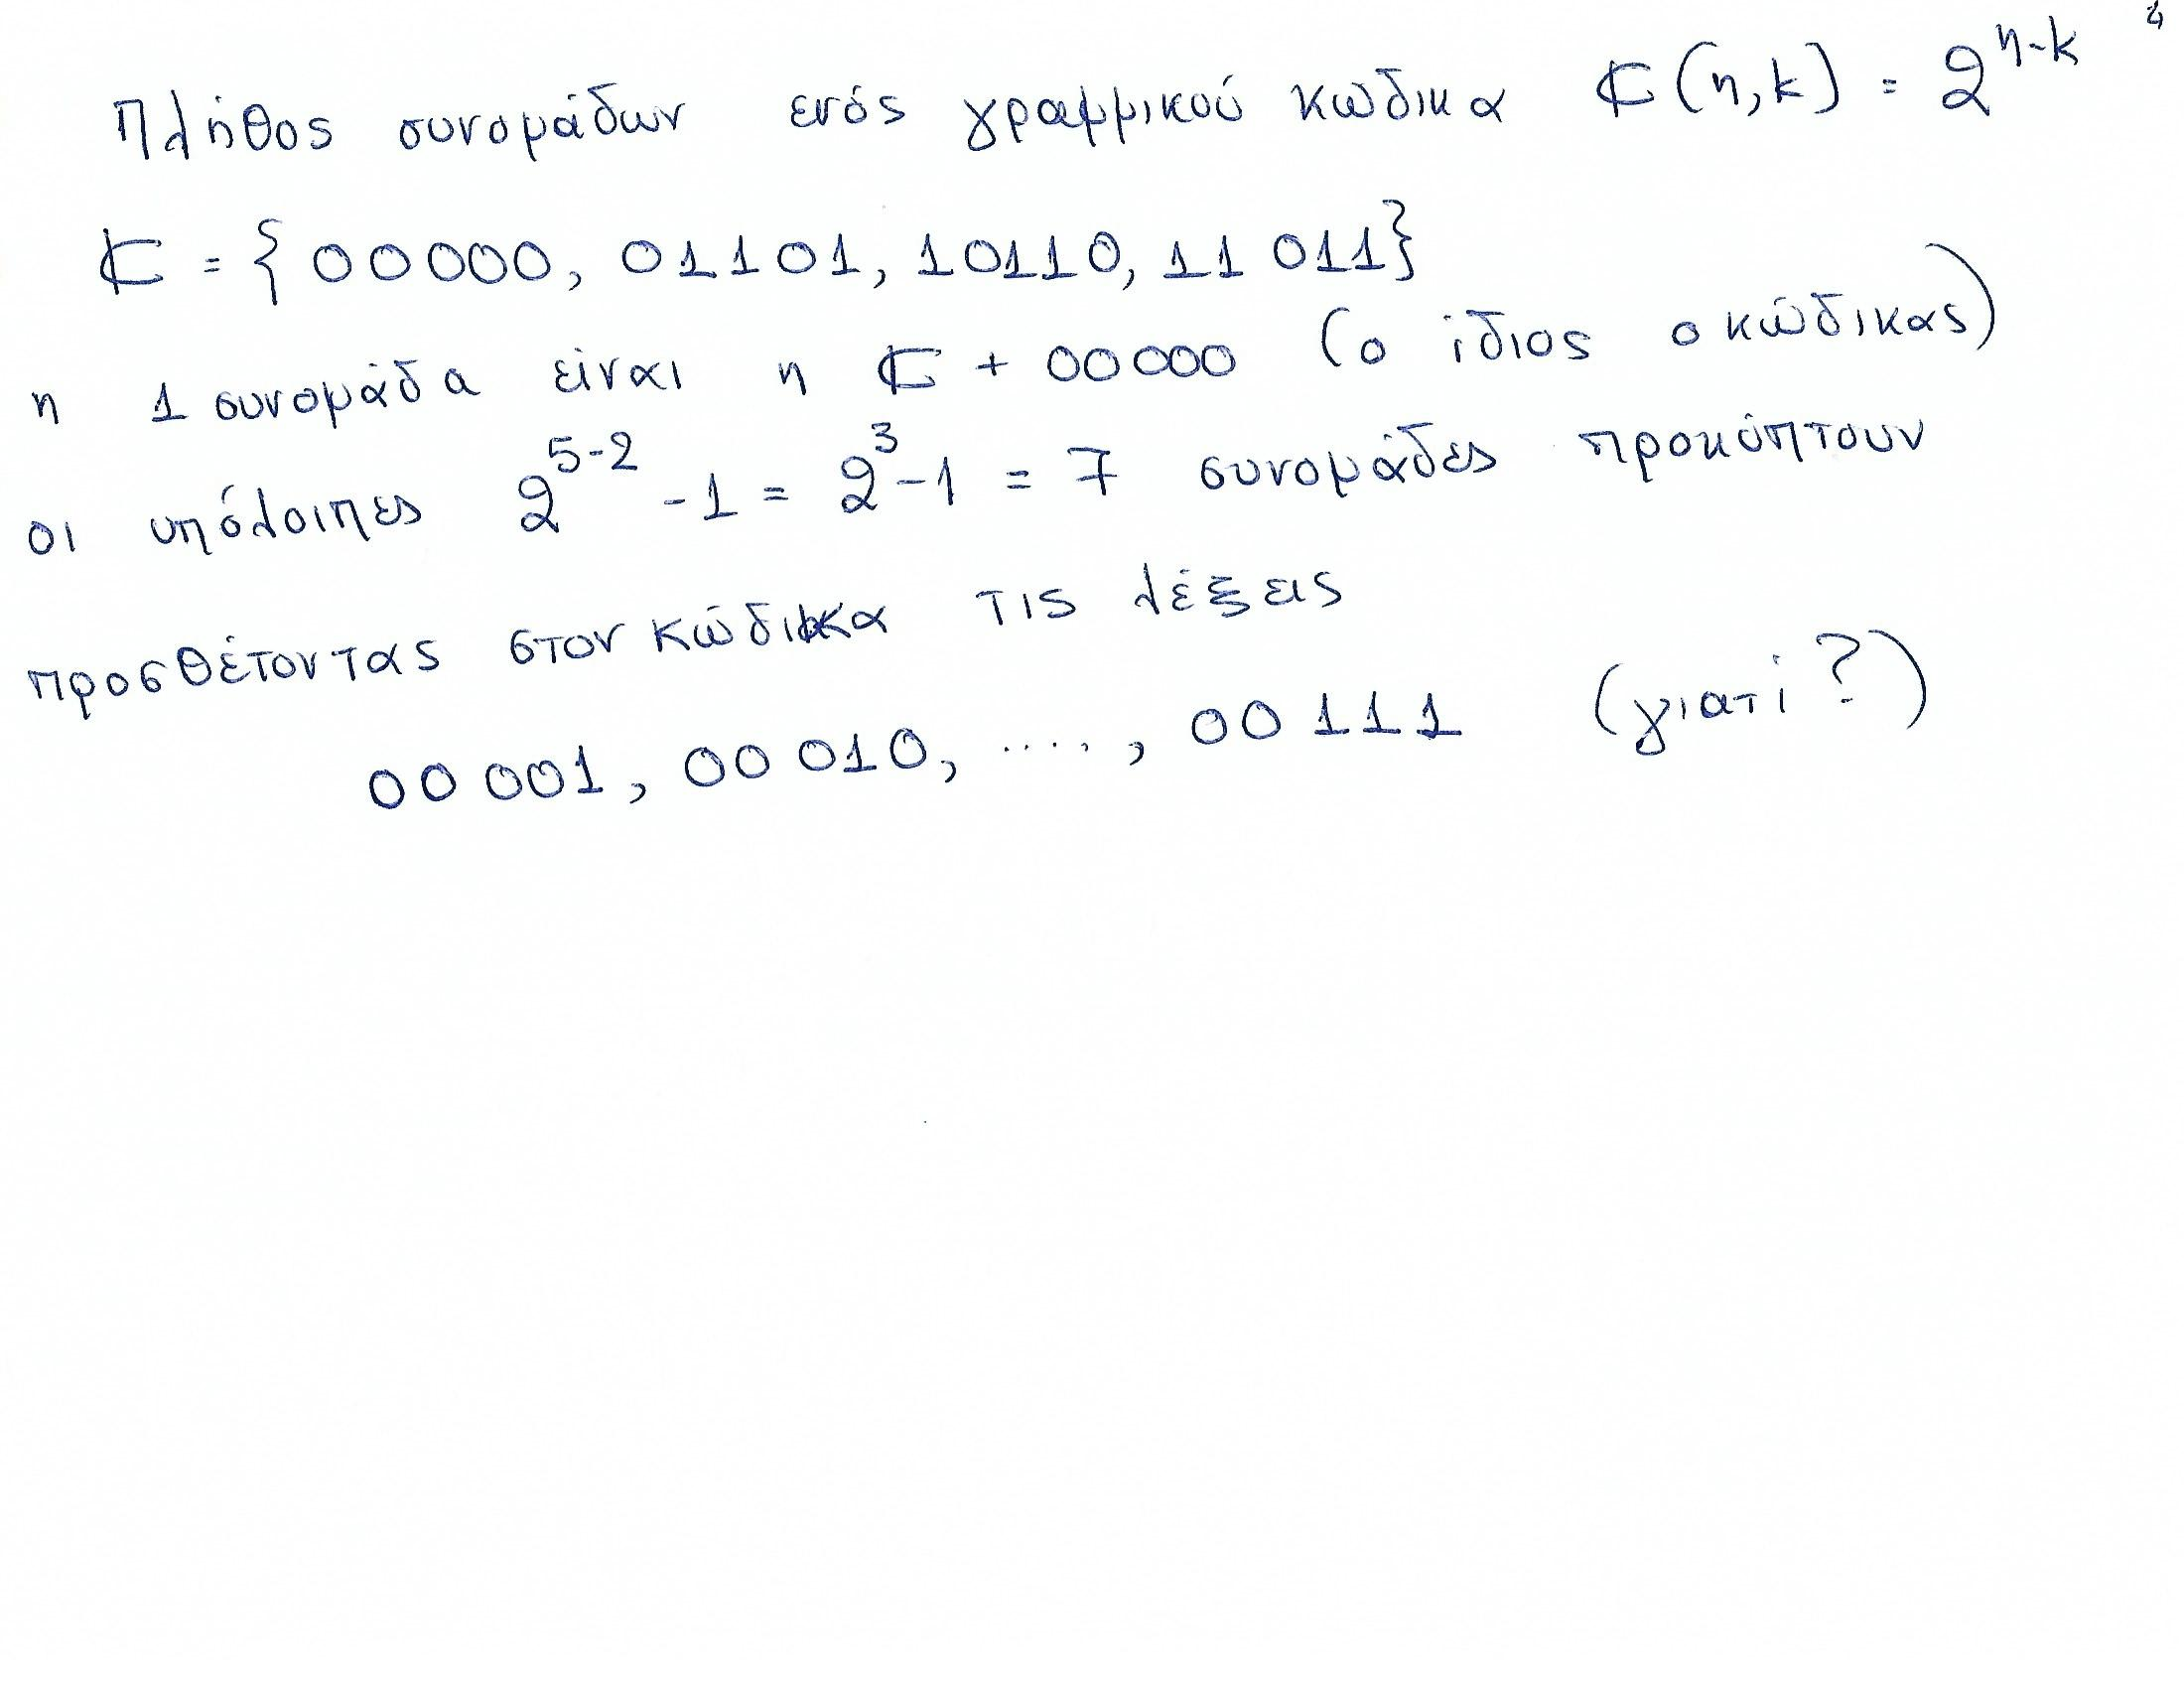 4
Πλήθος συνομάδων ενός γραμμικού κώδικα ℂ(n,k) = 2^{n-k}
ℂ = {00000, 01101, 10110, 11011}
η 1 συνομάδα είναι η ℂ + 00000 (ο ίδιος ο κώδικας)
οι υπόλοιπες 2^{5-2} - 1 = 2^3 - 1 = 7 συνομάδες προκύπτουν
προσθέτοντας στον κώδικα τις λέξεις
00001, 00010, ...., 00111 (γιατί?)